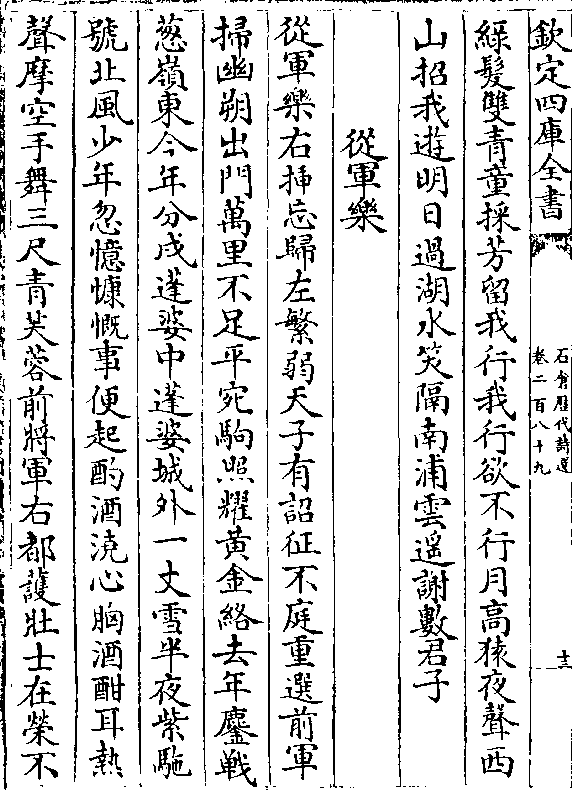 欽定四庫全書
石倉歷代詩選
卷二百八十九
十三
綠髮雙青童採芳留我行我行欲不行月高猿夜聲西
山招我遊明日過湖水笑隔南浦雲遥謝數君子
從軍樂
從軍樂右揷忘歸左繁弱天子有詔征不庭重選前軍
掃幽朔出門萬里不足平宛駒照耀黄金絡去年鏖戦
葱嶺東今年分戍蓬婆中蓬婆城外一丈雪半夜紫駞
號北風少年忽憶慷慨事便起酌酒澆心胸酒酣耳熱
聲摩空手舞三尺青芙蓉前將軍右都䕶壯士在榮不